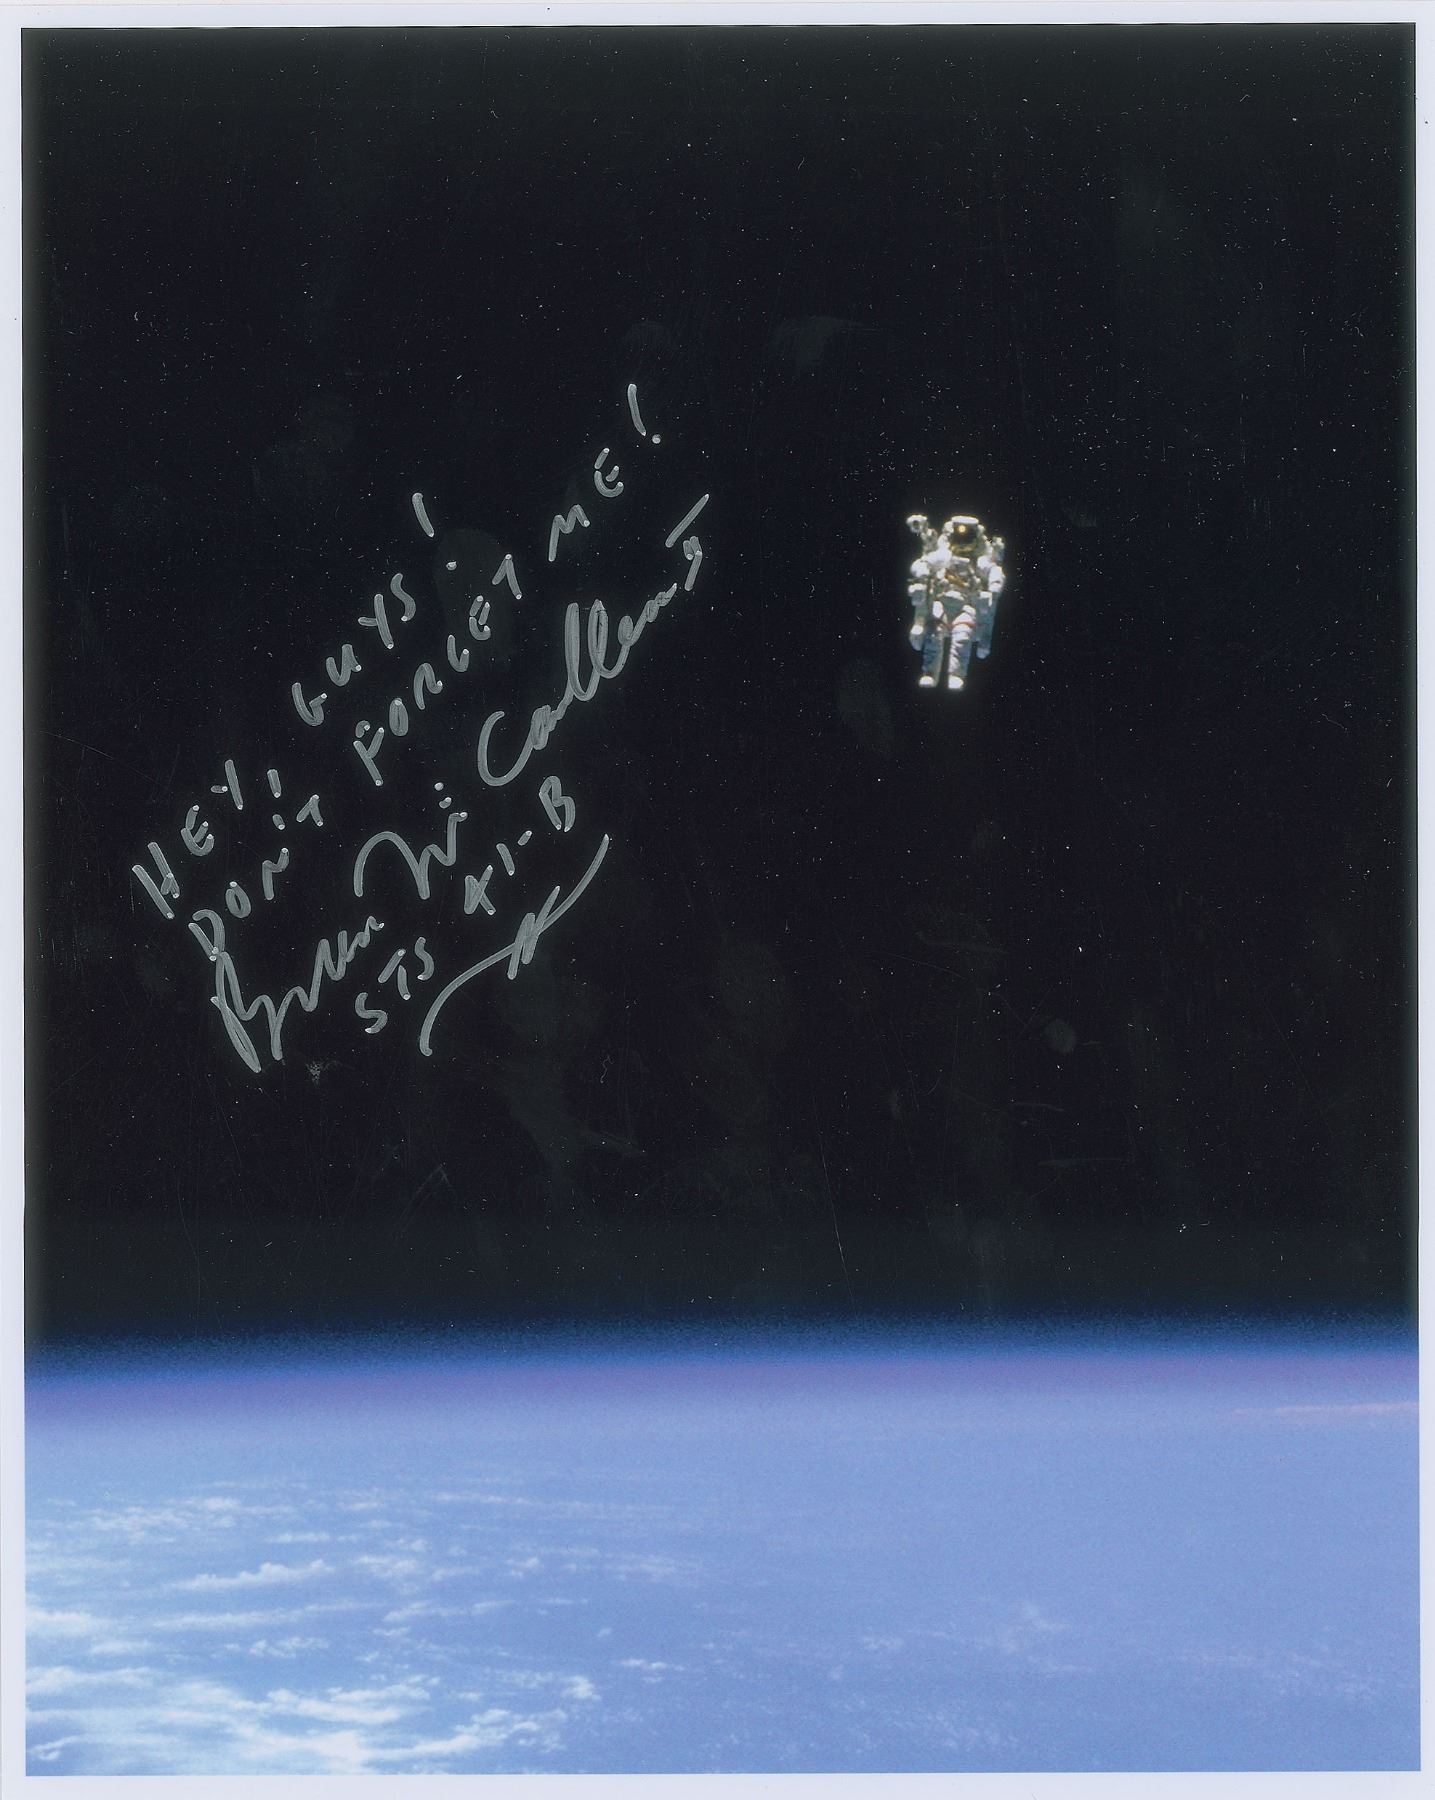 HEY! GUYS!
DON'T FORGET ME!
Bruce McCandless II
STS 41-B